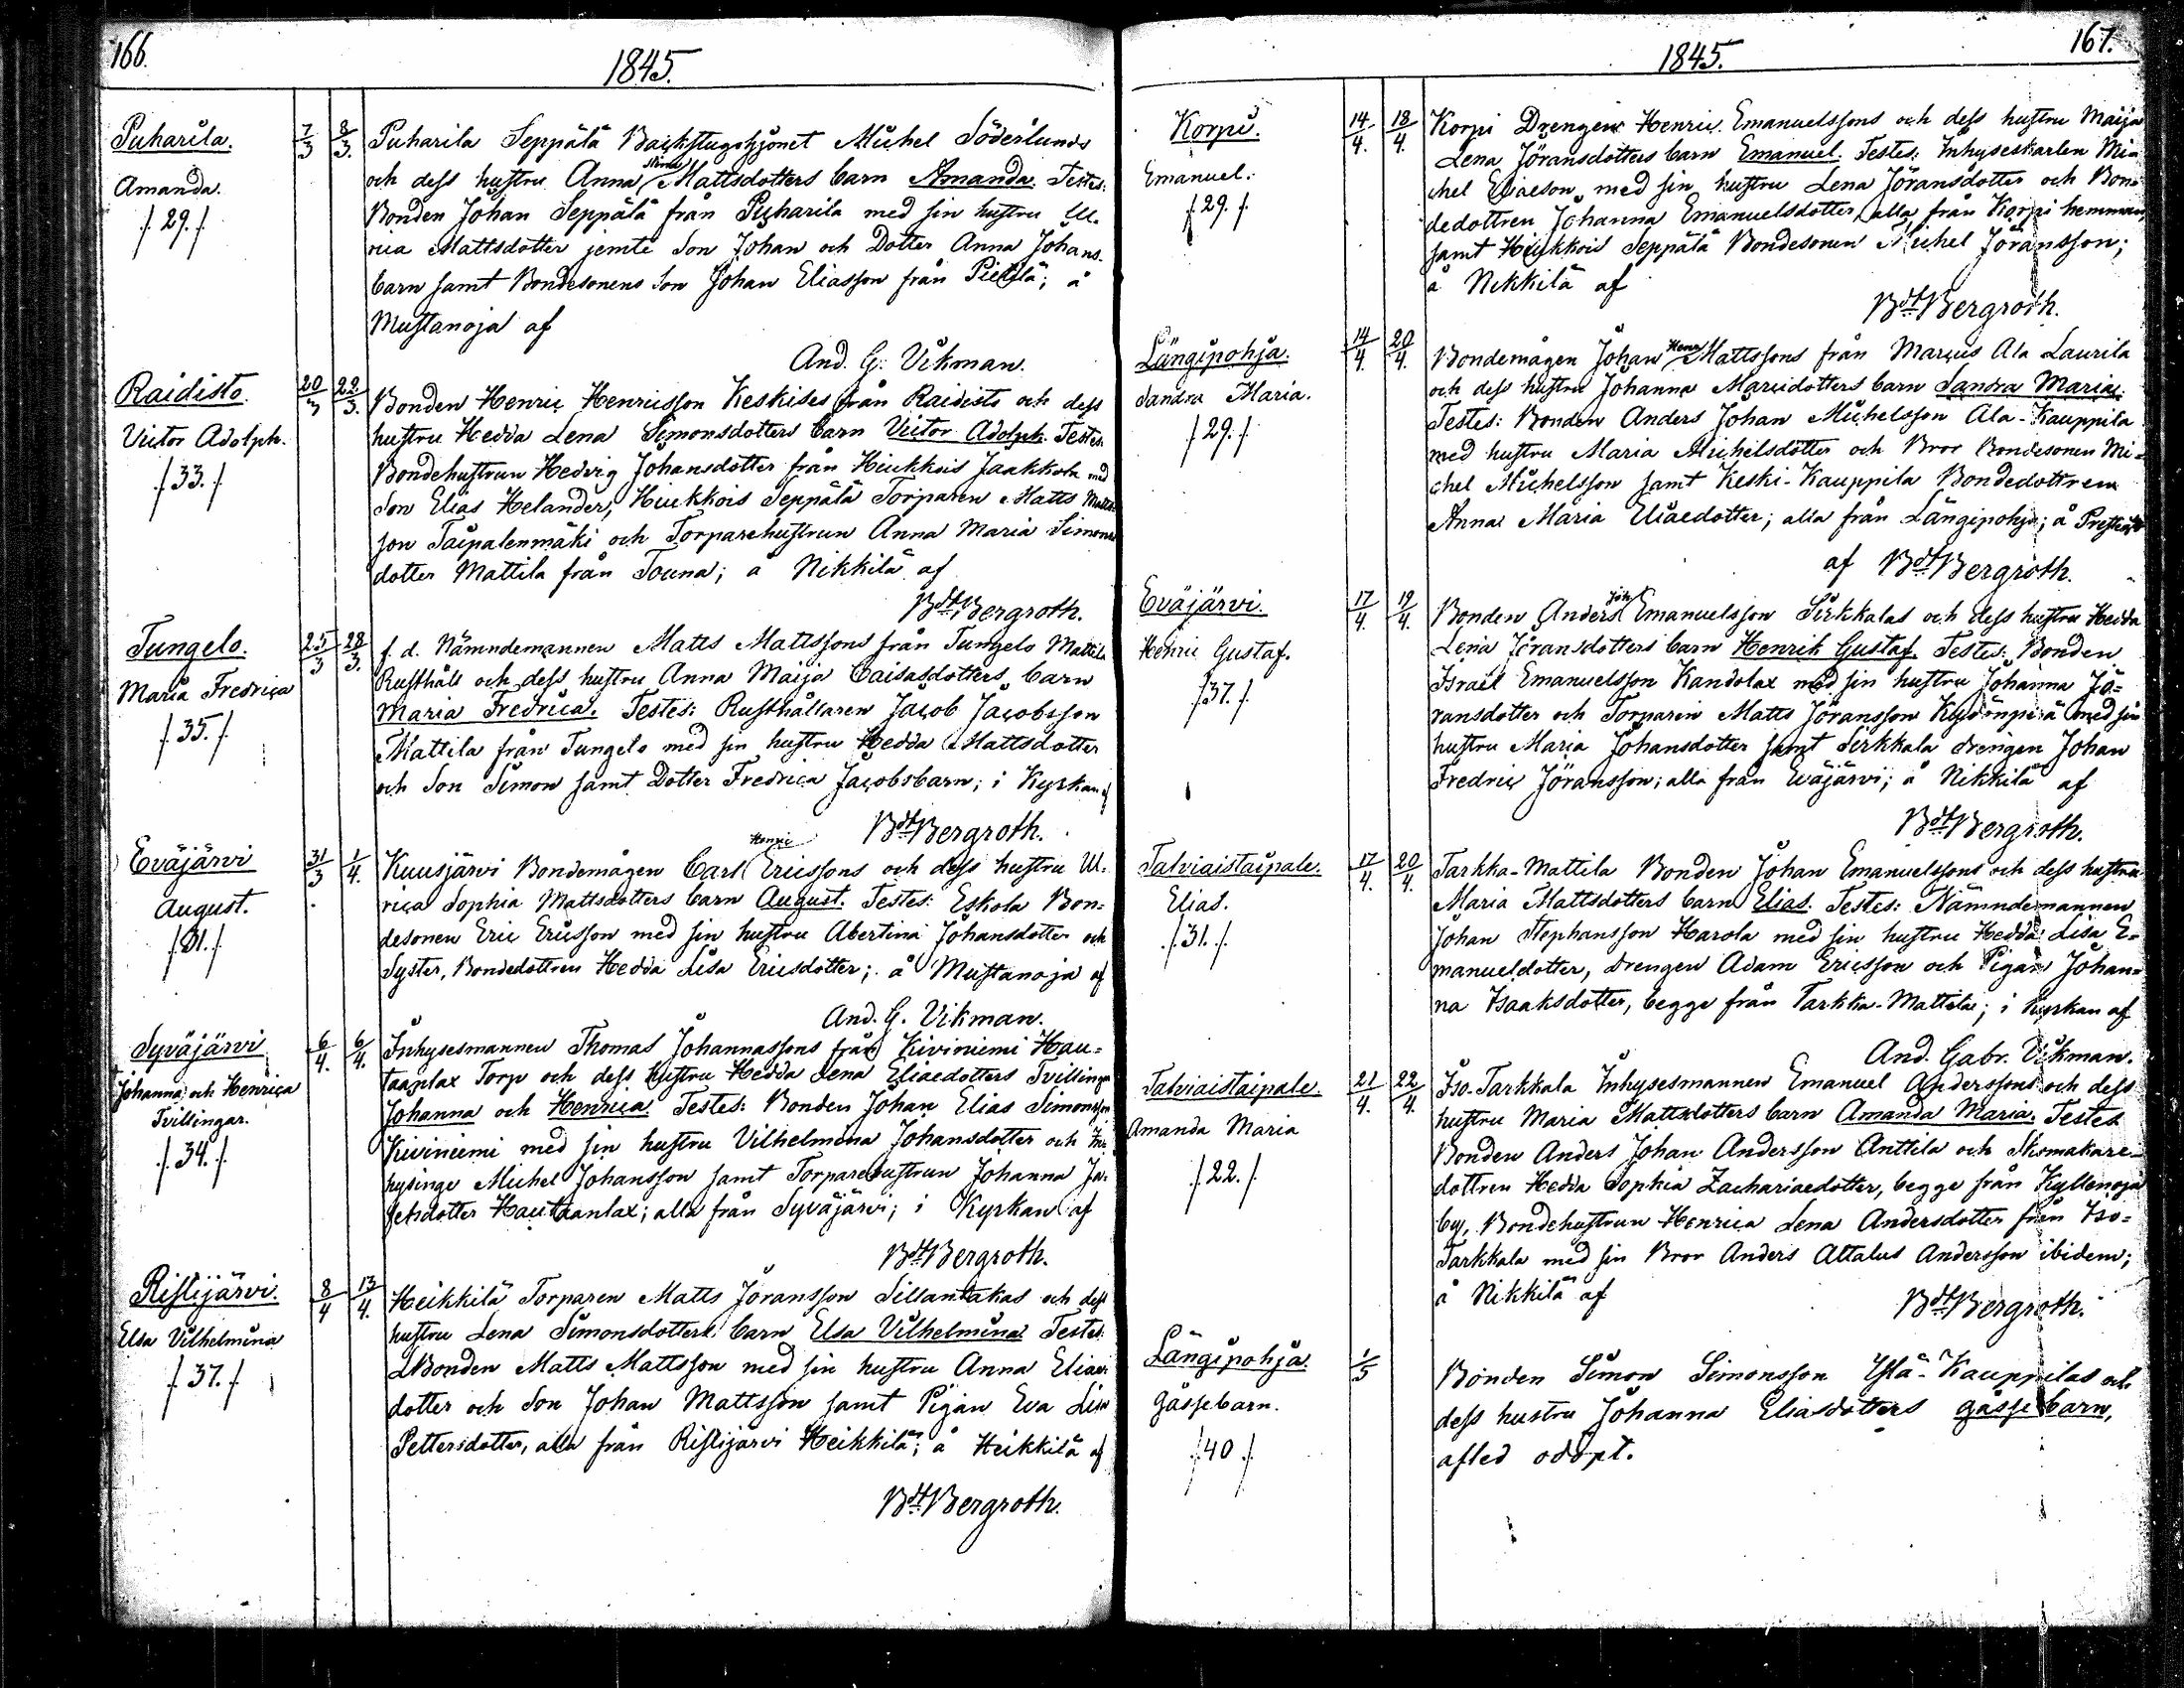 166.
1845.
Puharila.
Amanda.
/.29./
7/3
8/3.
Puharila Seppälä Backstugohjonet Michel Söderlunds
och dess hustru Anna Stina Mattsdotters barn Amanda. Testes:
Bonden Johan Seppälä från Puharila med sin hustru Ul-
rica Mattsdotter jemte Son Johan och Dotter Anna Johans-
barn samt Bondesonens Son Johan Eliasson från Pietilä; å
Mustanoja af
And. G. Vikman.
Raidisto.
Victor Adolph.
/.33./
20/3
22/3.
Bonden Henric Henricsson Keskises från Raidisto och dess
hustru Hedda Lena Simonsdotters barn Victor Adolph. Testes:
Bondehustrun Hedvig Johansdotter från Hiukkois Jaakkola med
Son Elias Helander, Hiukkois Seppälä Torparen Matts Matts-
son Taipalenmäki och Torparehustrun Anna Maria Simons-
dotter Mattila från Touna; å Nikkilä af
Bdt Bergroth.
Tungelo.
Maria Fredrica
/.35./
25/3
28/3.
f. d. Nämndemannen Matts Mattssons från Tungelo Mattila
Rusthåll och dess hustru Anna Maija Caisasdotters barn
Maria Fredrica. Testes: Rusthållaren Jacob Jacobsson
Mattila från Tungelo med sin hustru Hedda Mattsdotter
och Son Simon samt Dotter Fredrica Jacobsbarn; i Kyrkan af
Bdt Bergroth.
Eväjärvi
August.
/.31./
31/3
1/4.
Kuusjärvi Bondemågen Carl Henric Ericssons och dess hustru Ul-
rica Sophia Mattsdotters barn August. Testes: Eskola Bon-
desonen Eric Ericsson med sin hustru Abertina Johansdotter och
Syster, Bondedottren Hedda Lisa Ericsdotter; å Mustanoja af
And. G. Vikman.
Syväjärvi
Johanna och Henrica
Tvillingar.
/.34./
6/4.
6/4.
Inhysesmannen Thomas Johannassons från Kiviniemi Hau-
taanlax Torp och dess hustru Hedda Lena Eliaedotters Tvillingar
Johanna och Henrica. Testes: Bonden Johan Elias Simonsson
Kiviniemi med sin hustru Vilhelmina Johansdotter och In-
hysinge Michel Johansson samt Torparehustrun Johanna Ja-
fetsdotter Hautaanlax; alla från Syväjärvi; i Kyrkan af
Bdt Bergroth.
Ristijärvi.
Elsa Vilhelmina
/.37./
8/4
13/4.
Heikkilä Torparen Matts Jöransson Sillantakas och dess
hustru Lena Simonsdotters barn Elsa Vilhelmina. Testes:
LBonden Matts Mattsson med sin hustru Anna Eliae-
dotter och Son Johan Mattsson samt Pigan Eva Lisa
Pettersdotter, alla från Ristijärvi Heikkilä; å Heikkilä af
Bdt Bergroth.
1845.
167.
Korpi.
Emanuel.
/.29./
14/4.
18/4.
Korpi Drengen Henric Emanuelssons och dess hustru Maija
Lena Jöransdotters barn Emanuel. Testes: Inhyseskarlen Mi-
chel Eliaeson med sin hustru Lena Jöransdotter och Bon-
dedottren Johanna Emanuelsdotter, alla från Korpi hemman,
samt Hiukkois Seppälä Bondesonen Michel Jöransson;
å Nikkilä af
Bdt Bergroth.
Längipohja.
Sandra Maria.
/.29./
14/4.
20/4.
Bondemågen Johan Henr. Mattssons från Marcus Ala Laurila
och dess hustru Johanna Marcidotters barn Sandra Maria.
Testes: Bonden Anders Johan Michelsson Ala-Kauppila
med hustru Maria Michelsdotter och Bror Bondesonen Mi-
chel Michelsson samt Keski-Kauppila Bondedottren
Anna Maria Eliaedotter; alla från Längipohja; å
af Bdt Bergroth.
Eväjärvi.
Henric Gustaf.
/.37./
17/4.
19/4.
Bonden Anders Joh. Emanuelsson Sirkkalas och dess hustru Hedda
Lena Jöransdotters barn Henrik Gustaf. Testes: Bonden
Israel Emanuelsson Kandolax med sin hustru Johanna Jö-
ransdotter och Torparen Matts Jöransson med sin
hustru Maria Johansdotter samt Sirkkala drengen Johan
Fredric Jöransson; alla från Eväjärvi; å Nikkilä af
Bdt Bergroth.
Talviaistaipale.
Elias.
/.31./
17/4.
20/4.
Tarkka-Mattila Bonden Johan Emanuelssons och dess hustru
Maria Mattsdotters barn Elias. Testes: Nämndemannen
Johan Stephansson Harola med sin hustru Hedda Lisa E-
manueldotter, drengen Adam Ericsson och Pigan Johan-
na Isaaksdotter, begge från Tarkka-Mattila; i Kyrkan af
And. Gabr. Vikman.
Talviaistaipale.
Amanda Maria
/.22./
21/4.
22/4.
Iso-Tarkkala Inhysesmannen Emanuel Anderssons och dess
hustru Maria Mattsdotters barn Amanda Maria. Testes
Bonden Anders Johan Andersson Anttila och Skomakare-
dottren Hedda Sophia Zachariaedotter, begge från Kyllönoja
by, Bondehustrun Henrica Lena Andersdotter från Iso-
Tarkkala med sin Bror Anders Attalus Andersson ibidem;
å Nikkilä af
Bdt Bergroth.
Längipohja.
gossebarn.
/.40./
1/5
Bonden Simon Simonsson Yliä-Kauppilas och
dess hustru Johanna Eliasdotters gossebarn,
afled odöpt.